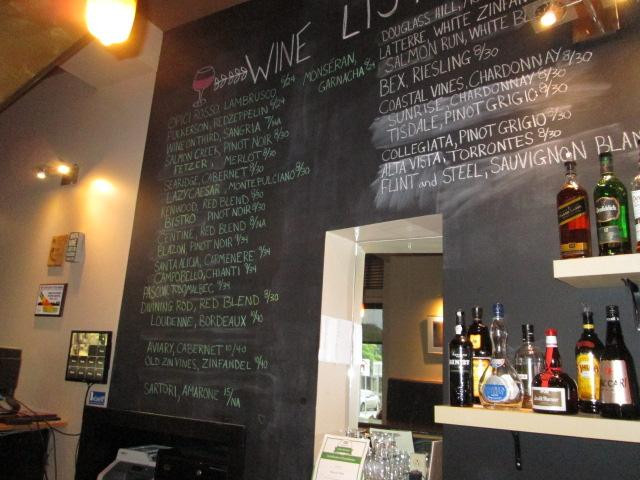 WINE LIST
OPICI ROSSO, LAMBRUSCO 6/24
FULKERSON, REDZEPPELIN 6/24
WINE ON THIRD, SANGRIA 7/NA
SALMON CREEK, PINOT NOIR 8/30
FETZER, MERLOT 8/30
SEARIDGE, CABERNET 8/30
LAZY CAESAR, MONTEPULCIANO 8/30
KENWOOD, RED BLEND 8/30
BISTRO, PINOT NOIR 8/30
CENTINE, RED BLEND 8/NA
BLAZON, PINOT NOIR 9/34
SANTA ALICIA, CARMENERE 9/34
CAMPOBELLO, CHIANTI 9/34
MALBEC 9/34
DIVINING ROD, RED BLEND 8/30
LOUDENNE, BORDEAUX 9/40
AVIARY, CABERNET 10/40
OLD ZIN VINES, ZINFANDEL 9/40
SARTORI, AMARONE 15/NA
MONSERAN,
GARNACHA
DOUGLASS HILL,
LA TERRE, WHITE ZINFAN
SALMON RUN, WHITE
BEX, RIESLING 8/30
COASTAL VINES, CHARDONNAY 8/30
SUNRISE, CHARDONNAY 8/30
TISDALE, PINOT GRIGIO 8/30
COLLEGIATA, PINOT GRIGIO 8/30
ALTA VISTA, TORRONTES 8/30
FLINT and STEEL, SAUVIGNON BLAN